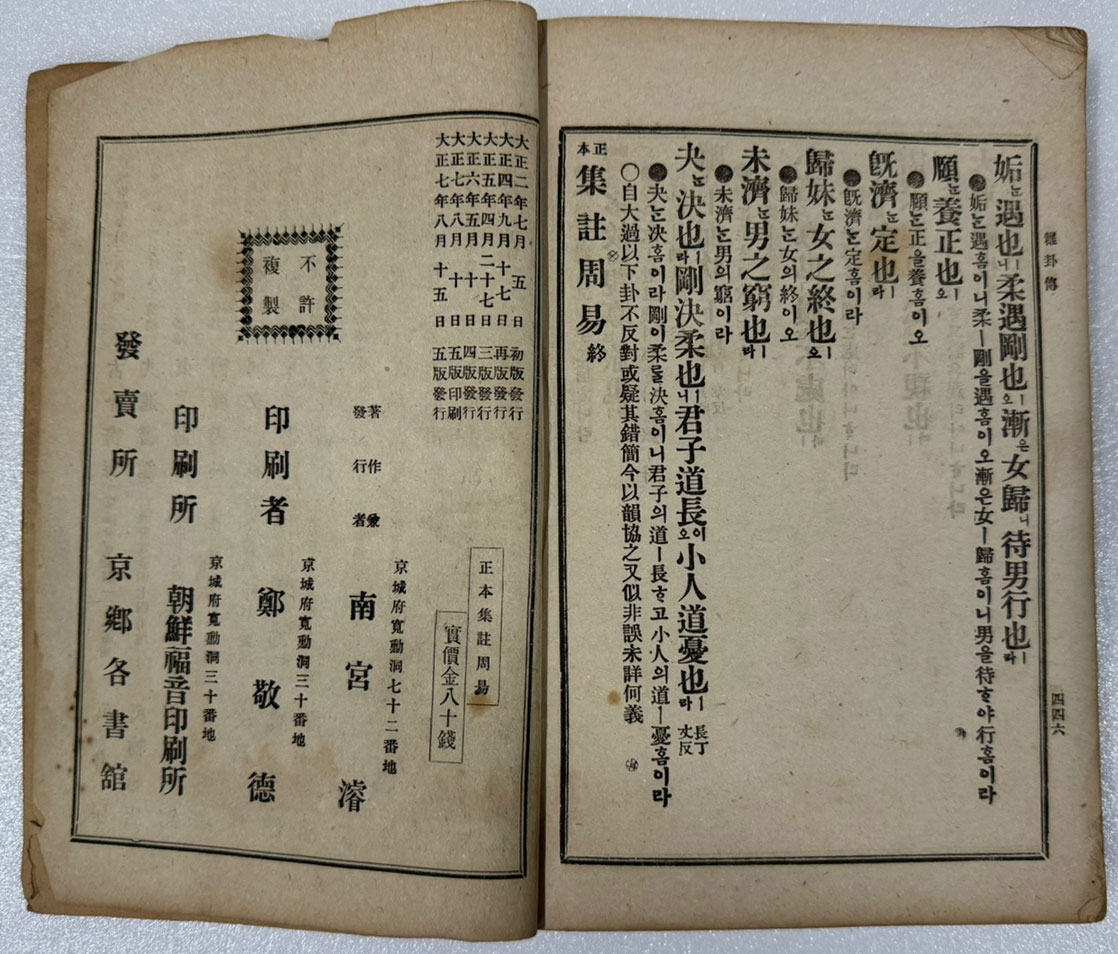 雜卦傳
四四六
姤는遇也ㅣ니柔遇剛也ㅣ오漸은女歸ㅣ니待男行也ㅣ라
姤는遇홈이니柔ㅣ剛을遇홈이오漸은女ㅣ歸홈이니男을待ᄒᆞ야行홈이라
頤는養正也ㅣ오
頤는正을養홈이오
旣濟는定也ㅣ라
旣濟는定홈이라
歸妹는女之終也ㅣ오
歸妹는女의終이오
未濟는男之窮也ㅣ라
未濟는男의窮이라
夬는決也ㅣ라剛決柔也ㅣ니君子道長이오小人道憂也ㅣ라 長丁丈反
夬는決홈이라剛이柔를決홈이니君子의道ㅣ長ᄒᆞ고小人의道ㅣ憂홈이라
○自大過以下卦不反對或疑其錯簡今以韻協之又似非誤未詳何義
正本集註周易終
大正二年七月五日初版發行
大正四年九月十七日再版發行
大正五年四月二十七日三版發行
大正六年五月十日四版發行
大正七年八月十日五版印刷
大正七年八月十五日五版發行
不許
複製
正本集註周易
實價金八十錢
京城府寬勳洞七十二番地
著作兼
發行者 南宮濬
京城府寬勳洞三十番地
印刷者 鄭敬德
京城府寬勳洞三十番地
印刷所 朝鮮福音印刷所
發賣所 京鄕各書館